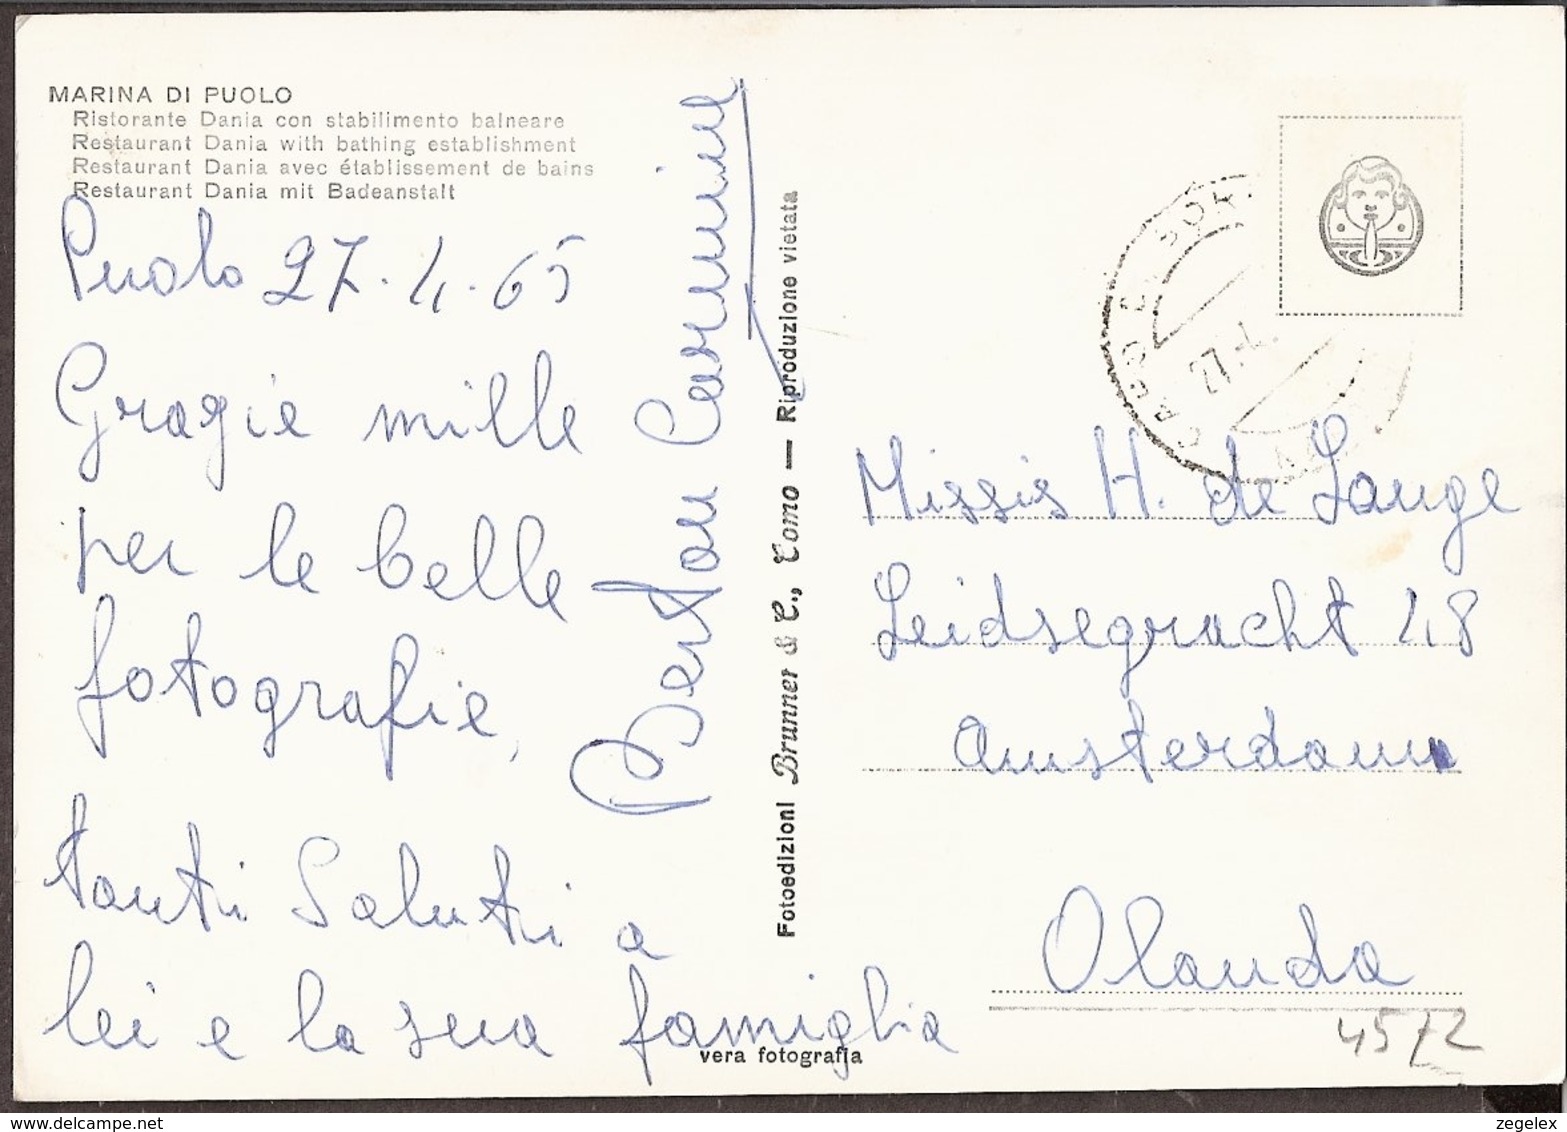 MARINA DI PUOLO
Ristorante Dania con stabilimento balneare
Restaurant Dania with bathing establishment
Restaurant Dania avec établissement de bains
Restaurant Dania mit Badeanstalt
Puolo 27.4.65
Grazie mille
per le belle
fotografie,
tanti Saluti a
lei e la sua famiglia
Carmine
Fotoedizioni Brunner & C., Como — Riproduzione vietata
vera fotografia
27-4
Missis H. de Lange
Leidsegracht 48
Amsterdam
Olanda
4572
www.delcampe.net
zegelex